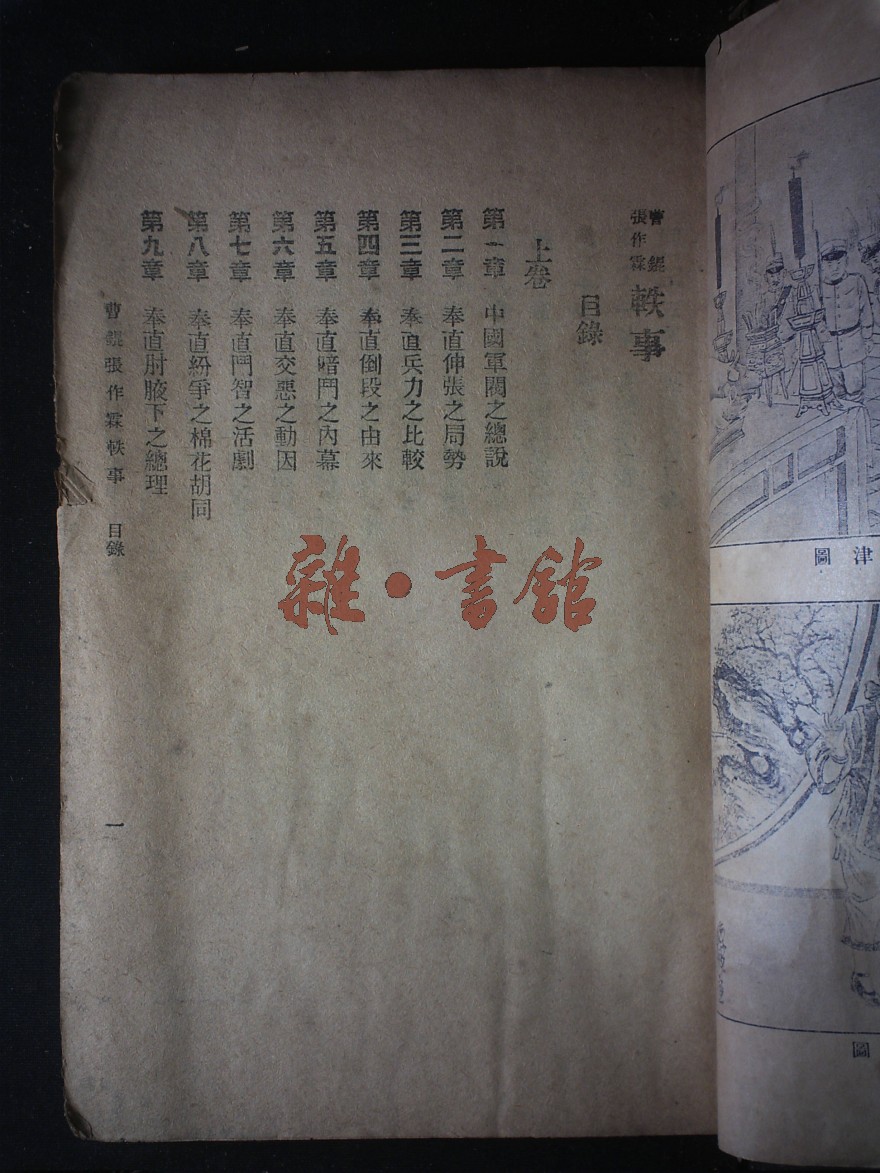 曹錕
張作霖
軼事
目錄
上卷
第一章　中國軍閥之總說
第二章　奉直伸張之局勢
第三章　奉直兵力之比較
第四章　奉直倒段之由來
第五章　奉直暗鬥之內幕
第六章　奉直交惡之動因
第七章　奉直鬥智之活劇
第八章　奉直紛爭之棉花胡同
第九章　奉直肘腋下之總理
曹錕張作霖軼事　目錄
一
雜·書館
圖　津
圖